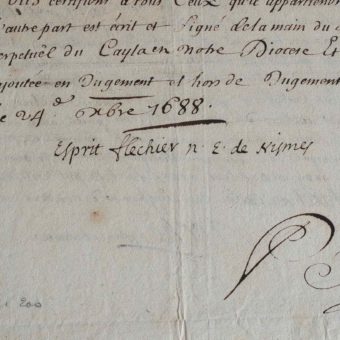 certifions a tous Ceux qu'il appartiendra
l'autre part est écrit et signé de la main du
perpetuel du Cayla en notre Diocese Et
ajoutée en Jugement et hors de Jugement
24e. 8xbre 1688.
Esprit flechier n. E. de Nismes
200